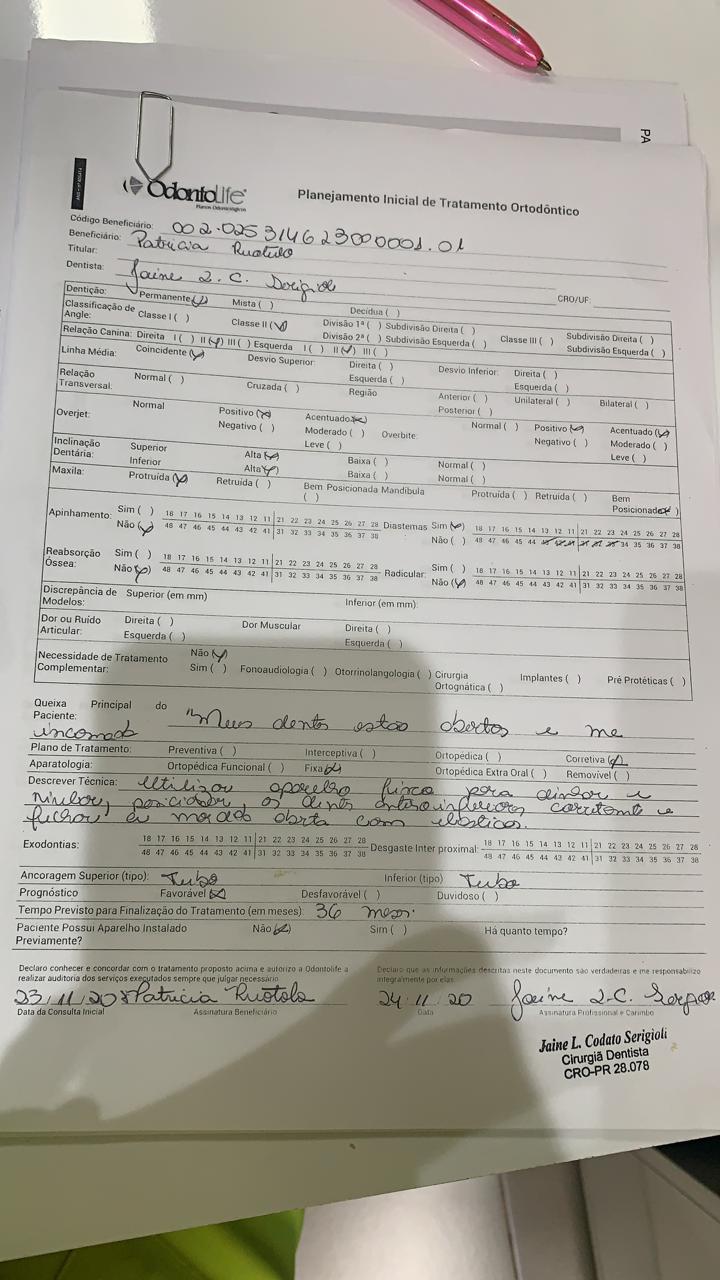 PA
OdontoLife
Planos Odontológicos
Planejamento Inicial de Tratamento Ortodôntico
Código Beneficiário: 002.025314623000001.01
Beneficiário: Patricia Ruotulo
Titular:
Dentista: Jaine L. C. Serigioli CRO/UF:
Dentição: Permanente ( ) Mista ( ) Decídua ( )
Classificação de Angle: Classe I ( ) Classe II ( ) Divisão 1ª ( ) Subdivisão Direita ( ) Classe III ( ) Subdivisão Direita ( )
Divisão 2ª ( ) Subdivisão Esquerda ( ) Subdivisão Esquerda ( )
Relação Canina: Direita I ( ) II ( ) III ( ) Esquerda I ( ) II ( ) III ( )
Linha Média: Coincidente ( ) Desvio Superior: Direita ( ) Desvio Inferior: Direita ( )
Esquerda ( ) Esquerda ( )
Relação Transversal: Normal ( ) Cruzada ( ) Região Anterior ( ) Unilateral ( ) Bilateral ( )
Posterior ( )
Overjet: Normal Positivo ( ) Acentuado ( ) Overbite: Normal ( ) Positivo ( ) Acentuado ( )
Negativo ( ) Moderado ( ) Negativo ( ) Moderado ( )
Leve ( ) Leve ( )
Inclinação Dentária: Superior Alta ( ) Baixa ( ) Normal ( )
Inferior Alta ( ) Baixa ( ) Normal ( )
Maxila: Protruída ( ) Retruída ( ) Bem Posicionada ( ) Mandíbula Protruída ( ) Retruída ( ) Bem Posicionada ( )
Apinhamento: Sim ( ) 18 17 16 15 14 13 12 11 21 22 23 24 25 26 27 28 Diastemas Sim ( ) 18 17 16 15 14 13 12 11 21 22 23 24 25 26 27 28
Não ( ) 48 47 46 45 44 43 42 41 31 32 33 34 35 36 37 38 Não ( ) 48 47 46 45 44 34 35 36 37 38
Reabsorção Óssea: Sim ( ) 18 17 16 15 14 13 12 11 21 22 23 24 25 26 27 28 Radicular: Sim ( ) 18 17 16 15 14 13 12 11 21 22 23 24 25 26 27 28
Não ( ) 48 47 46 45 44 43 42 41 31 32 33 34 35 36 37 38 Não ( ) 48 47 46 45 44 43 42 41 31 32 33 34 35 36 37 38
Discrepância de Modelos: Superior (em mm) Inferior (em mm):
Dor ou Ruído Articular: Direita ( ) Dor Muscular Direita ( )
Esquerda ( ) Esquerda ( )
Necessidade de Tratamento Complementar: Não ( )
Sim ( ) Fonoaudiologia ( ) Otorrinolangologia ( ) Cirurgia Ortognática ( ) Implantes ( ) Pré Protéticas ( )
Queixa Principal do Paciente: "Meus dentes estão abertos e me
incomoda
Plano de Tratamento: Preventiva ( ) Interceptiva ( ) Ortopédica ( ) Corretiva ( )
Aparatologia: Ortopédica Funcional ( ) Fixa ( ) Ortopédica Extra Oral ( ) Removível ( )
Descrever Técnica: Utilizar aparelho fixo para alinhar e
nivelar, posicionar os dentes anteroinferiores corretamente e
fechar a mordida aberta com elásticos.
Exodontias: 18 17 16 15 14 13 12 11 21 22 23 24 25 26 27 28 Desgaste Inter proximal: 18 17 16 15 14 13 12 11 21 22 23 24 25 26 27 28
48 47 46 45 44 43 42 41 31 32 33 34 35 36 37 38 48 47 46 45 44 43 42 41 31 32 33 34 35 36 37 38
Ancoragem Superior (tipo): Tubo Inferior (tipo) Tubo
Prognóstico Favorável ( ) Desfavorável ( ) Duvidoso ( )
Tempo Previsto para Finalização do Tratamento (em meses): 36 meses.
Paciente Possui Aparelho Instalado Previamente? Não ( ) Sim ( ) Há quanto tempo?
Declaro conhecer e concordar com o tratamento proposto acima e autorizo a Odontolife a
realizar auditoria dos serviços executados sempre que julgar necessário
Declaro que as informações descritas neste documento são verdadeiras e me responsabilizo
integralmente por elas.
23/11/20 Patricia Ruotolo 24 11 20 Jaine L. C. Serigioli
Data da Consulta Inicial Assinatura Beneficiário Data Assinatura Profissional e Carimbo
Jaine L. Codato Serigioli
Cirurgiã Dentista
CRO-PR 28.078